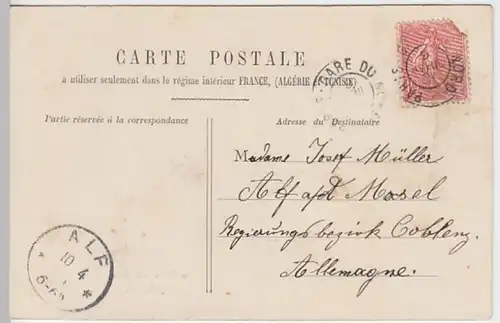 CARTE POSTALE
à utiliser seulement dans le régime intérieur FRANCE, (ALGÉRIE et TUNISIE)
Partie réservée à la correspondance
Adresse du Destinataire
Madame Josef Müller
Alf a/d Mosel
Regierungsbezirk Coblenz
Allemagne.
GARE DU NORD
PARIS
ALF
10 4